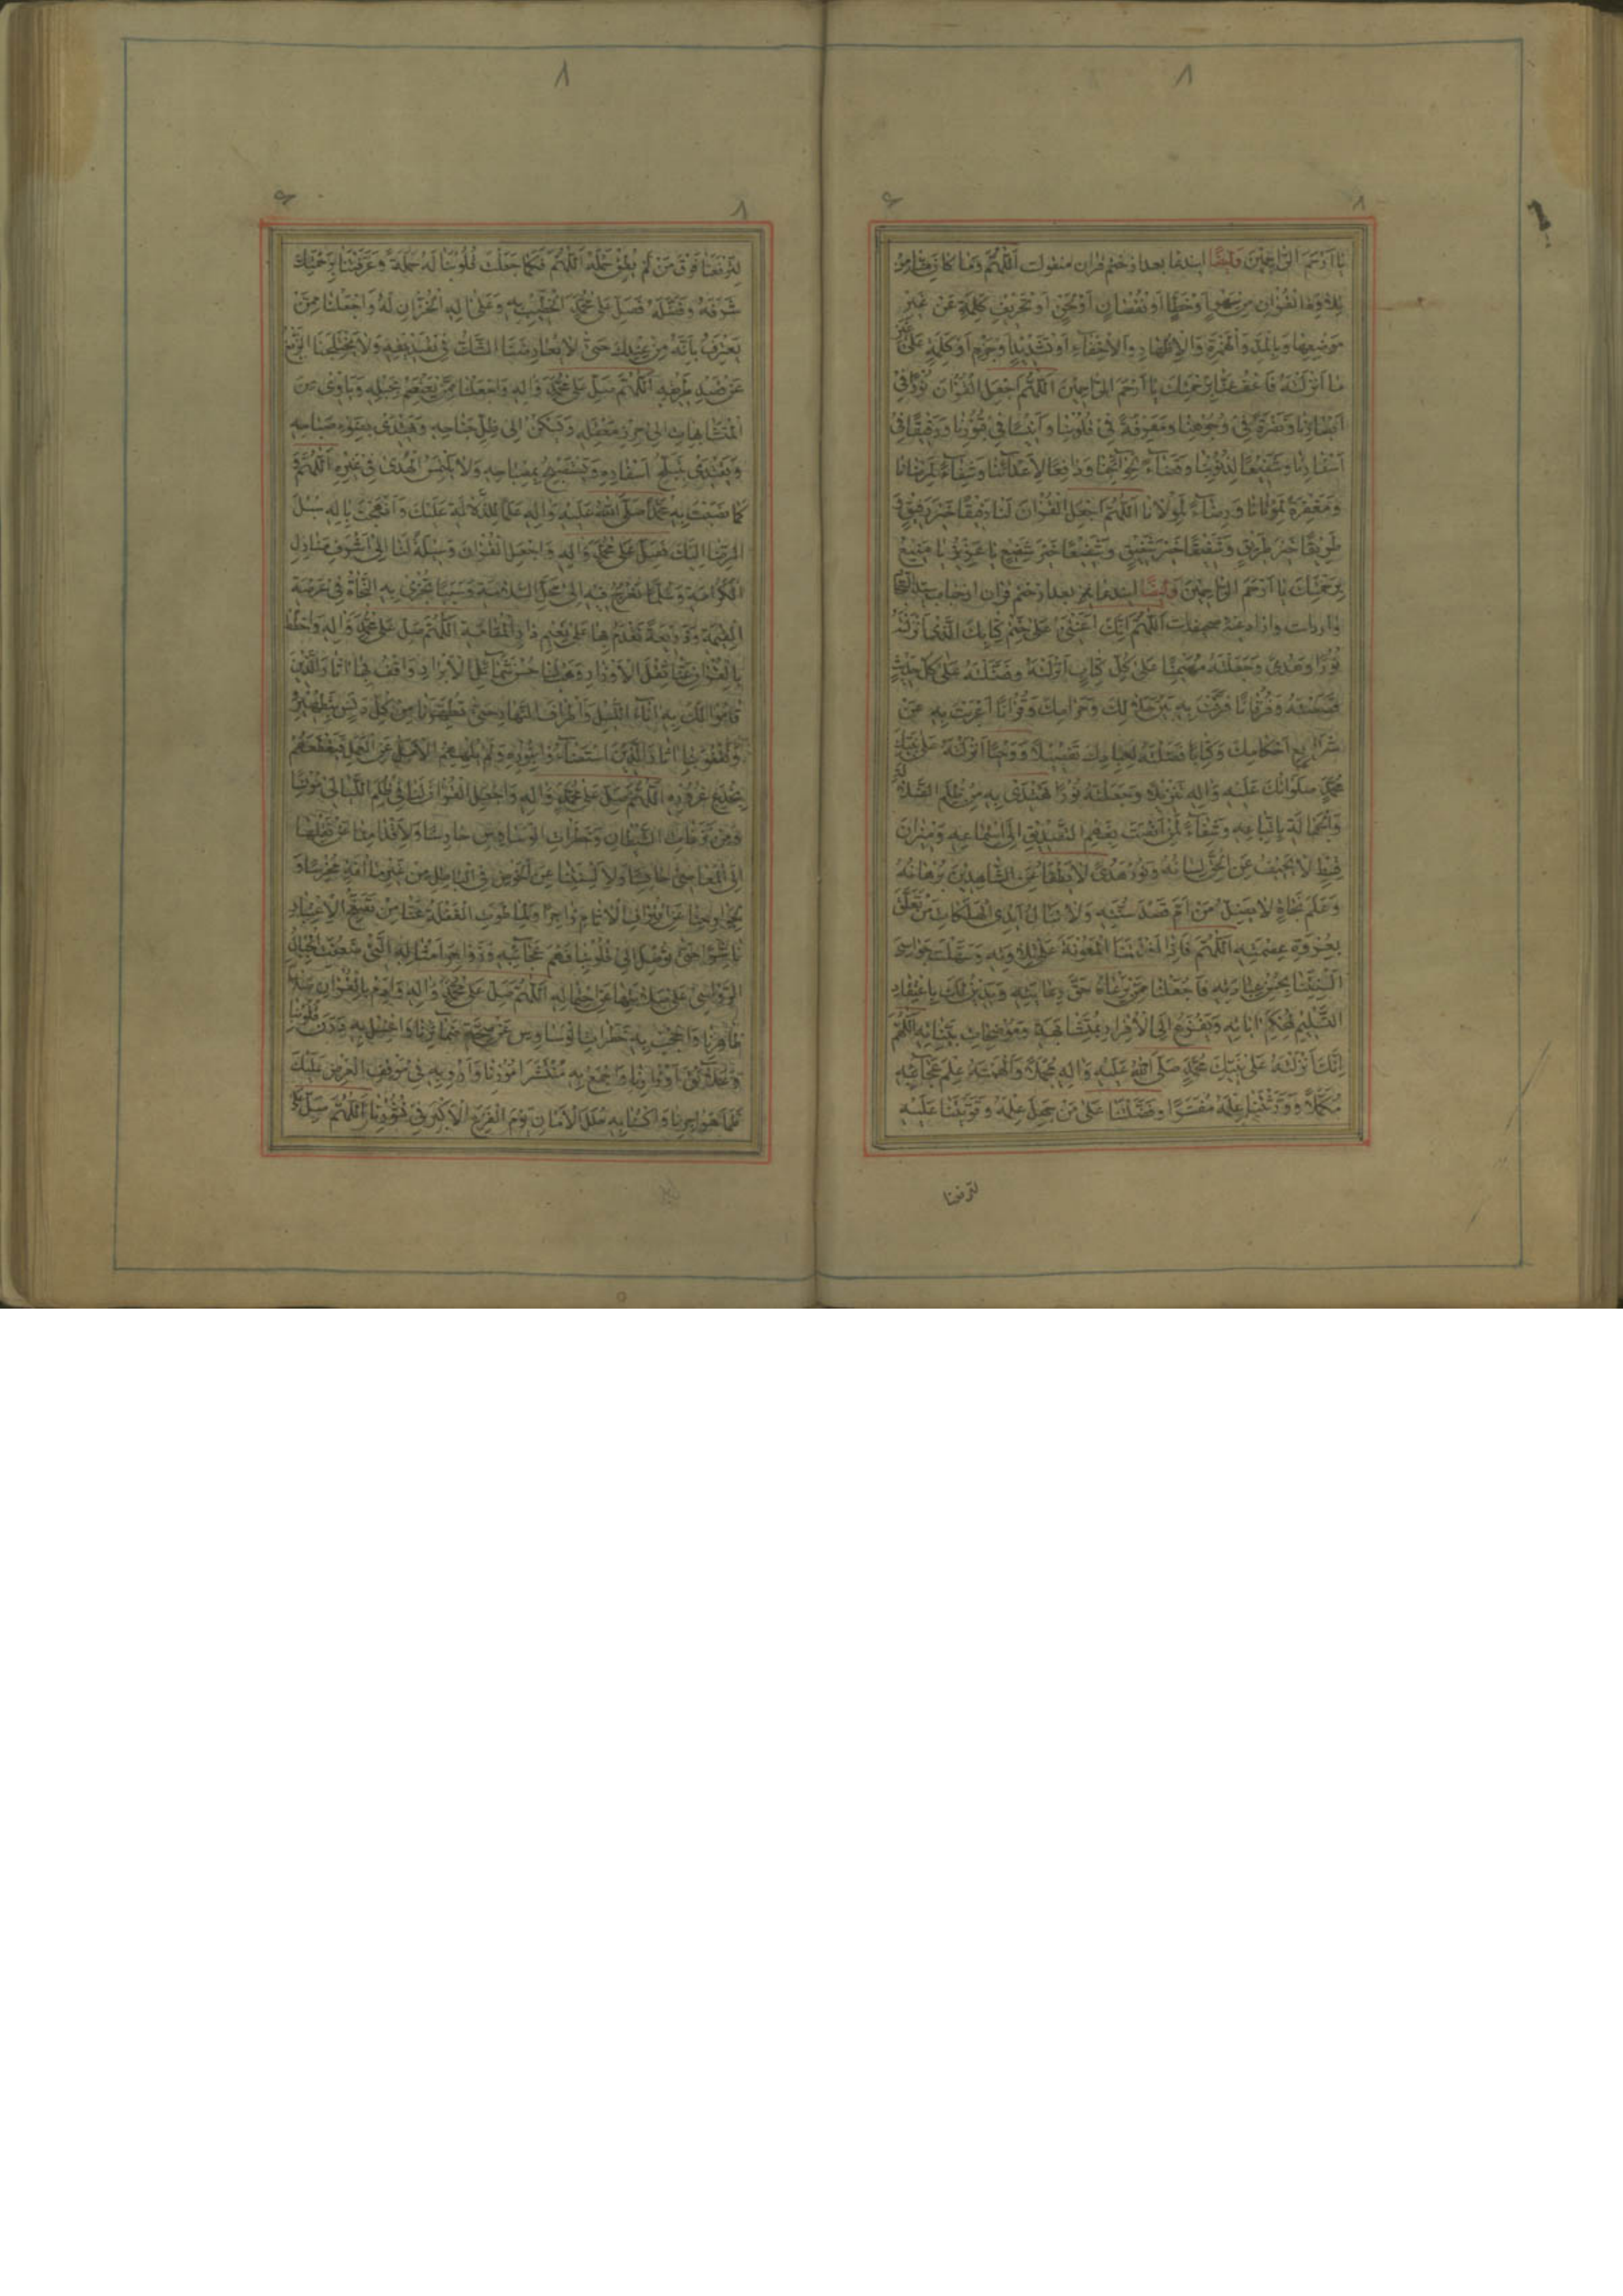 يَا اَرْحَمَ الرَّاحِمِيْنَ وَايضًا ايندعا بعد از ختم قران منقولست اَللّٰهُمَّ
الْقُرْاٰنِ مِنْ سَهْوٍ اَوْ خَطَاءٍ اَوْ نُقْصَانٍ اَوْ لَحْنٍ اَوْ تَحْرِيْفِ كَلِمَةٍ عَنْ غَيْرِ
مَوْضِعِهَا وَالْاِظْهَارِ وَالْاِخْفَآءِ اَوْ تَشْدِيْدٍ اَوْ كَلِمَةٍ عَلٰى غَيْرِ
مَا اَنْزَلْتَهُ فَاعْفُ عَنَّا بِرَحْمَتِكَ يَا اَرْحَمَ الرَّاحِمِيْنَ اَللّٰهُمَّ اجْعَلِ الْقُرْاٰنَ نُوْرًا فِيْ
اَبْصَارِنَا وَنَضْرَةً فِيْ وُجُوْهِنَا وَمَعْرِفَةً فِيْ قُلُوْبِنَا وَاُنْسًا فِيْ قُبُوْرِنَا وَرَفِيْقًا فِيْ
اَسْفَارِنَا وَشَفِيْعًا لِذُنُوْبِنَا وَقَضَآءً لِحَوَآئِجِنَا وَدَافِعًا لِاَعْدَآئِنَا وَشِفَآءً لِمَرْضَانَا
وَمَغْفِرَةً لِمَوْتَانَا وَرِضَآءً لِمَوْلَانَا اَللّٰهُمَّ اجْعَلِ الْقُرْاٰنَ لَنَا رَفِيْقًا خَيْرَ رَفِيْقٍ وَ
طَرِيْقًا خَيْرَ طَرِيْقٍ وَشَفِيْقًا خَيْرَ شَفِيْقٍ وَشَفِيْعًا خَيْرَ شَفِيْعٍ يَا عَزِيْزُ يَا مَنِيْعُ
بِرَحْمَتِكَ يَا اَرْحَمَ الرَّاحِمِيْنَ وَايضًا ايندعا نيز بعد از ختم قران از جناب
وارداست و از ادعيهٔ صحيفه‌است اَللّٰهُمَّ اِنَّكَ اَعَنْتَنِيْ عَلٰى خَتْمِ كِتَابِكَ الَّذِيْ اَنْزَلْتَهُ
نُوْرًا وَهُدًى وَجَعَلْتَهُ مُهَيْمِنًا عَلٰى كُلِّ كِتَابٍ اَنْزَلْتَهُ وَفَضَّلْتَهُ عَلٰى كُلِّ حَدِيْثٍ
قَصَصْتَهُ وَفُرْقَانًا فَرَقْتَ بِهِ بَيْنَ حَلَالِكَ وَحَرَامِكَ وَقُرْاٰنًا اَعْرَبْتَ بِهِ عَنْ
شَرَايِعِ اَحْكَامِكَ وَكِتَابًا فَصَّلْتَهُ لِعِبَادِكَ تَفْصِيْلًا وَوَحْيًا اَنْزَلْتَهُ عَلٰى نَبِيِّكَ
مُحَمَّدٍ صَلَوَاتُكَ عَلَيْهِ وَاٰلِهِ تَنْزِيْلًا وَجَعَلْتَهُ نُوْرًا نَهْتَدِيْ بِهِ مِنْ ظُلَمِ الضَّلَالَةِ
وَالْجَهَالَةِ بِاتِّبَاعِهِ وَشِفَآءً لِمَنْ اَنْصَتَ بِفَهْمِ التَّصْدِيْقِ اِلَى اسْتِمَاعِهِ وَمِيْزَانَ
قِسْطٍ لَا يَحِيْفُ عَنِ الْحَقِّ لِسَانُهُ وَنُوْرَ هُدًى لَا يُطْفَاُ عَنِ الشَّاهِدِيْنَ بُرْهَانُهُ
وَعَلَمَ نَجَاةٍ لَا يَضِلُّ مَنْ اَمَّ قَصْدَ سُنَّتِهِ وَلَا تَنَالُ اَيْدِي الْهَلَكَاتِ مَنْ تَعَلَّقَ
بِعُرْوَةِ عِصْمَتِهِ اَللّٰهُمَّ فَاِذَا اَفَدْتَنَا الْمَعُوْنَةَ عَلٰى تِلَاوَتِهِ وَسَهَّلْتَ جَوَاسِيَ
اَلْسِنَتِنَا بِحُسْنِ عِبَارَتِهِ فَاجْعَلْنَا مِمَّنْ يَرْعَاهُ حَقَّ رِعَايَتِهِ وَيَدِيْنُ لَكَ بِاعْتِقَادِ
التَّسْلِيْمِ لِمُحْكَمِ اٰيَاتِهِ وَيَفْزَعُ اِلَى الْاِقْرَارِ بِمُتَشَابِهِهِ وَمُوْضِحَاتِ بَيِّنَاتِهِ اَللّٰهُمَّ
اِنَّكَ اَنْزَلْتَهُ عَلٰى نَبِيِّكَ مُحَمَّدٍ صَلَّى اللّٰهُ عَلَيْهِ وَاٰلِهِ مُجْمَلًا وَاَلْهَمْتَهُ عِلْمَ عَجَآئِبِهِ
مُكَمَّلًا وَوَرَّثْتَنَا عِلْمَهُ مُفَسَّرًا وَفَضَّلْتَنَا عَلٰى مَنْ جَهِلَ عِلْمَهُ وَقَوَّيْتَنَا عَلَيْهِ
لترفعنا
لِتَرْفَعَنَا فَوْقَ مَنْ لَمْ يُطِقْ حَمْلَهُ اَللّٰهُمَّ فَكَمَا جَعَلْتَ قُلُوْبَنَا لَهُ حَمَلَةً وَعَرَّفْتَنَا بِرَحْمَتِكَ
شَرَفَهُ وَفَضْلَهُ فَصَلِّ عَلٰى مُحَمَّدٍ الْخَطِيْبِ بِهِ وَعَلٰى اٰلِهِ الْخُزَّانِ لَهُ وَاجْعَلْنَا مِمَّنْ
يَعْتَرِفُ بِاَنَّهُ مِنْ عِنْدِكَ حَتّٰى لَا يُعَارِضَنَا الشَّكُّ فِيْ تَصْدِيْقِهِ وَلَا يَخْتَلِجَنَا الزَّيْغُ
عَنْ قَصْدِ طَرِيْقِهِ اَللّٰهُمَّ صَلِّ عَلٰى مُحَمَّدٍ وَاٰلِهِ وَاجْعَلْنَا مِمَّنْ يَعْتَصِمُ بِحَبْلِهِ وَيَاْوِيْ مِنَ
الْمُتَشَابِهَاتِ اِلٰى حِرْزِ مَعْقِلِهِ وَيَسْكُنُ اِلٰى ظِلِّ جَنَاحِهِ وَيَهْتَدِيْ بِضَوْءِ صَبَاحِهِ
وَيَقْتَدِيْ بِتَبَلُّجِ اَسْفَارِهِ وَيَسْتَصْبِحُ بِمِصْبَاحِهِ وَلَا يَلْتَمِسُ الْهُدٰى فِيْ غَيْرِهِ اَللّٰهُمَّ وَ
كَمَا نَصَبْتَ بِهِ مُحَمَّدًا صَلَّى اللّٰهُ عَلَيْهِ وَاٰلِهِ عَلَمًا لِلدَّلَالَةِ عَلَيْكَ وَاَنْهَجْتَ بِاٰلِهِ سُبُلَ
الرِّضَا اِلَيْكَ فَصَلِّ عَلٰى مُحَمَّدٍ وَاٰلِهِ وَاجْعَلِ الْقُرْاٰنَ وَسِيْلَةً لَنَا اِلٰى اَشْرَفِ مَنَازِلِ
الْكَرَامَةِ وَسُلَّمًا نَعْرُجُ فِيْهِ اِلٰى مَحَلِّ السَّلَامَةِ وَسَبَبًا نُجْزٰى بِهِ النَّجَاةَ فِيْ عَرْصَةِ
الْقِيٰمَةِ وَذَرِيْعَةً نَقْدَمُ بِهَا عَلٰى نَعِيْمِ دَارِ الْمُقَامَةِ اَللّٰهُمَّ صَلِّ عَلٰى مُحَمَّدٍ وَاٰلِهِ وَاحْطُطْ
بِالْقُرْاٰنِ عَنَّا ثِقْلَ الْاَوْزَارِ وَهَبْ لَنَا حُسْنَ شَمَآئِلِ الْاَبْرَارِ وَاقْفُ بِنَا اٰثَارَ الَّذِيْنَ
قَامُوْا لَكَ بِهِ اٰنَآءَ اللَّيْلِ وَاَطْرَافَ النَّهَارِ حَتّٰى تُطَهِّرَنَا مِنْ كُلِّ دَنَسٍ بِتَطْهِيْرِهِ
وَتَقْفُوَ بِنَا اٰثَارَ الَّذِيْنَ اسْتَضَآءُوْا بِنُوْرِهِ وَلَمْ يُلْهِهِمُ الْاَمَلُ عَنِ الْعَمَلِ فَيَقْطَعَهُمْ
بِخُدَعِ غُرُوْرِهِ اَللّٰهُمَّ صَلِّ عَلٰى مُحَمَّدٍ وَاٰلِهِ وَاجْعَلِ الْقُرْاٰنَ لَنَا فِيْ ظُلَمِ اللَّيَالِيْ مُوْنِسًا
وَمِنْ نَزَغَاتِ الشَّيْطَانِ وَخَطَرَاتِ الْوَسَاوِسِ حَارِسًا وَلِاَقْدَامِنَا عَنْ نَقْلِهَا
اِلَى الْمَعَاصِيْ حَابِسًا وَلِاَلْسِنَتِنَا عَنِ الْخَوْضِ فِي الْبَاطِلِ مِنْ غَيْرِ مَا اٰفَةٍ مُخْرِسًا وَ
لِجَوَارِحِنَا عَنِ اقْتِرَافِ الْاٰثَامِ زَاجِرًا وَلِمَا طَوَتِ الْغَفْلَةُ عَنَّا مِنْ تَصَفُّحِ الْاِعْتِبَارِ
نَاشِرًا حَتّٰى تُوْصِلَ اِلٰى قُلُوْبِنَا فَهْمَ عَجَآئِبِهِ وَزَوَاجِرَ اَمْثَالِهِ الَّتِيْ ضَعُفَتِ الْجِبَالُ
الرَّوَاسِيْ عَلٰى صَلَابَتِهَا عَنِ احْتِمَالِهِ اَللّٰهُمَّ صَلِّ عَلٰى مُحَمَّدٍ وَاٰلِهِ وَاَدِمْ بِالْقُرْاٰنِ صَلَاحَ
ظَاهِرِنَا وَاحْجُبْ بِهِ خَطَرَاتِ الْوَسَاوِسِ عَنْ صِحَّةِ ضَمَآئِرِنَا وَاغْسِلْ بِهِ دَرَنَ قُلُوْبِنَا
وَعَلَآئِقَ اَوْزَارِنَا وَاجْمَعْ بِهِ مُنْتَشَرَ اُمُوْرِنَا وَاَرْوِ بِهِ فِيْ مَوْقِفِ الْعَرْضِ عَلَيْكَ
ظَمَاَ هَوَاجِرِنَا وَاكْسُنَا بِهِ حُلَلَ الْاَمَانِ يَوْمَ الْفَزَعِ الْاَكْبَرِ فِيْ نُشُوْرِنَا اَللّٰهُمَّ صَلِّ عَلٰى